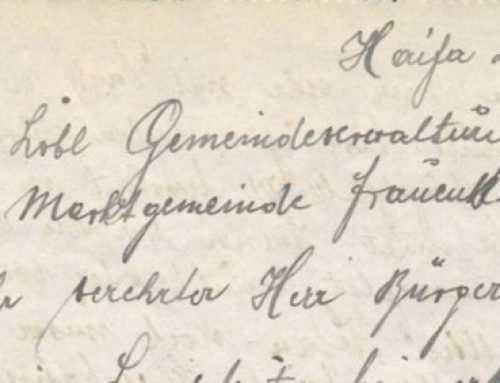 Haifa
Löbl Gemeindeverwaltun
Marktgemeinde Frauenk
verehrter Herr Bürger